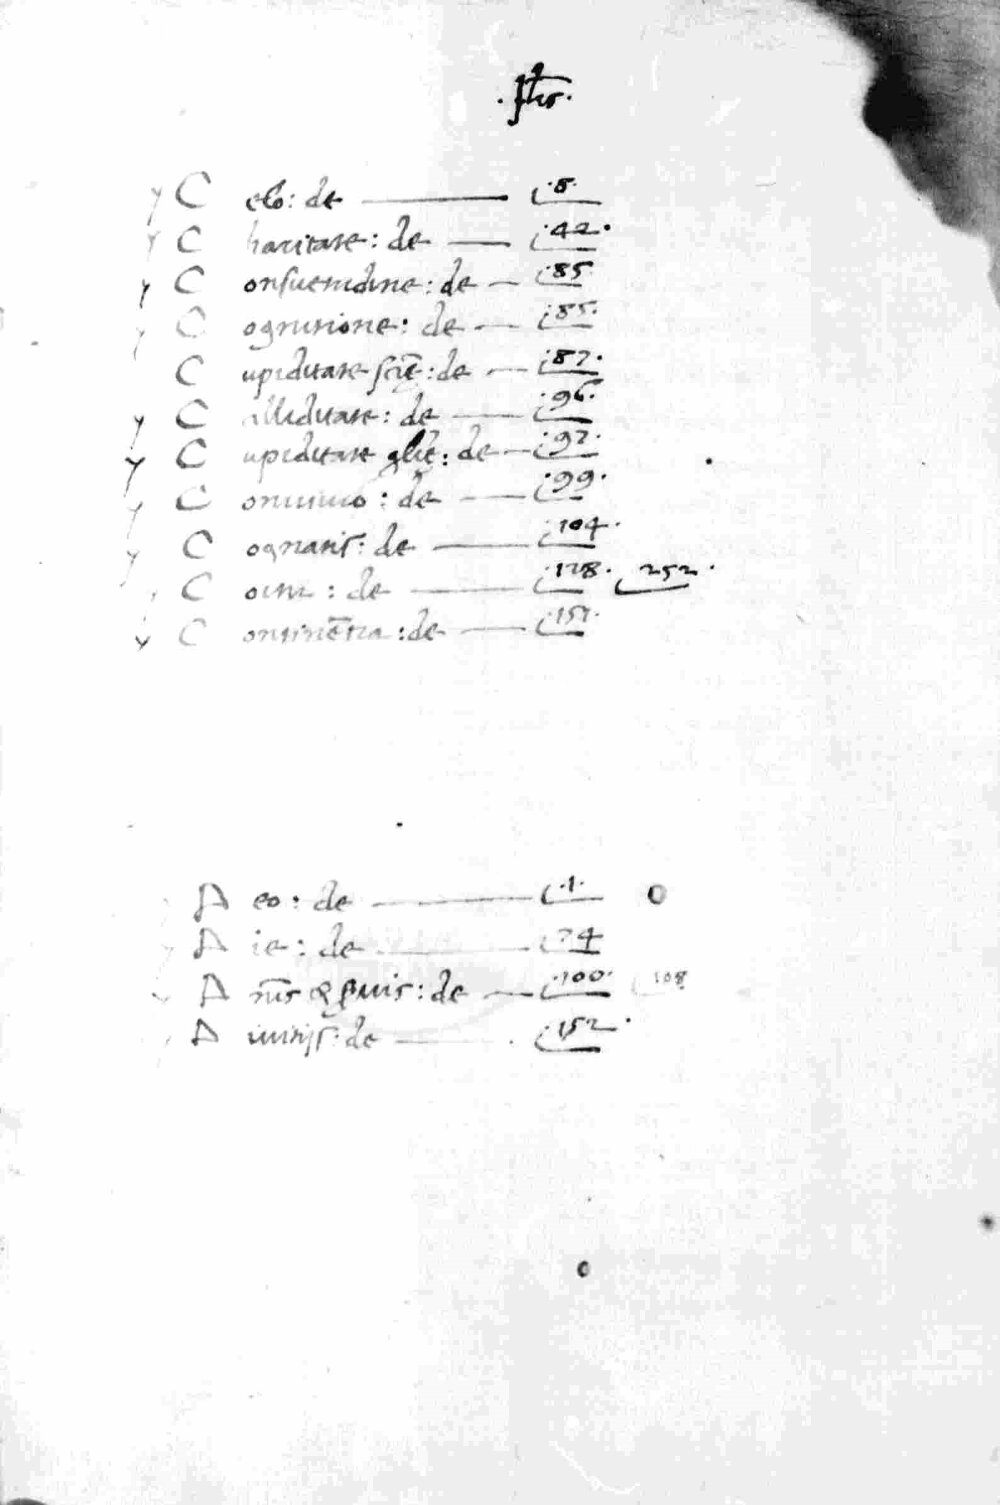 .yhs.
C elo: de 8
C haritate: de 42
C onsuetudine: de 85
C ognitione: de 85
C upiditate sciē: de 87
C alliditate: de 96
C upiditate gliē: de 97
C onuiuio: de 99
C ognatis: de 104
C de 128. 252.
C ontinētia: de 151
D eo: de 1
D ie: de 74
D de 100. 108
D iuitijs: de 152